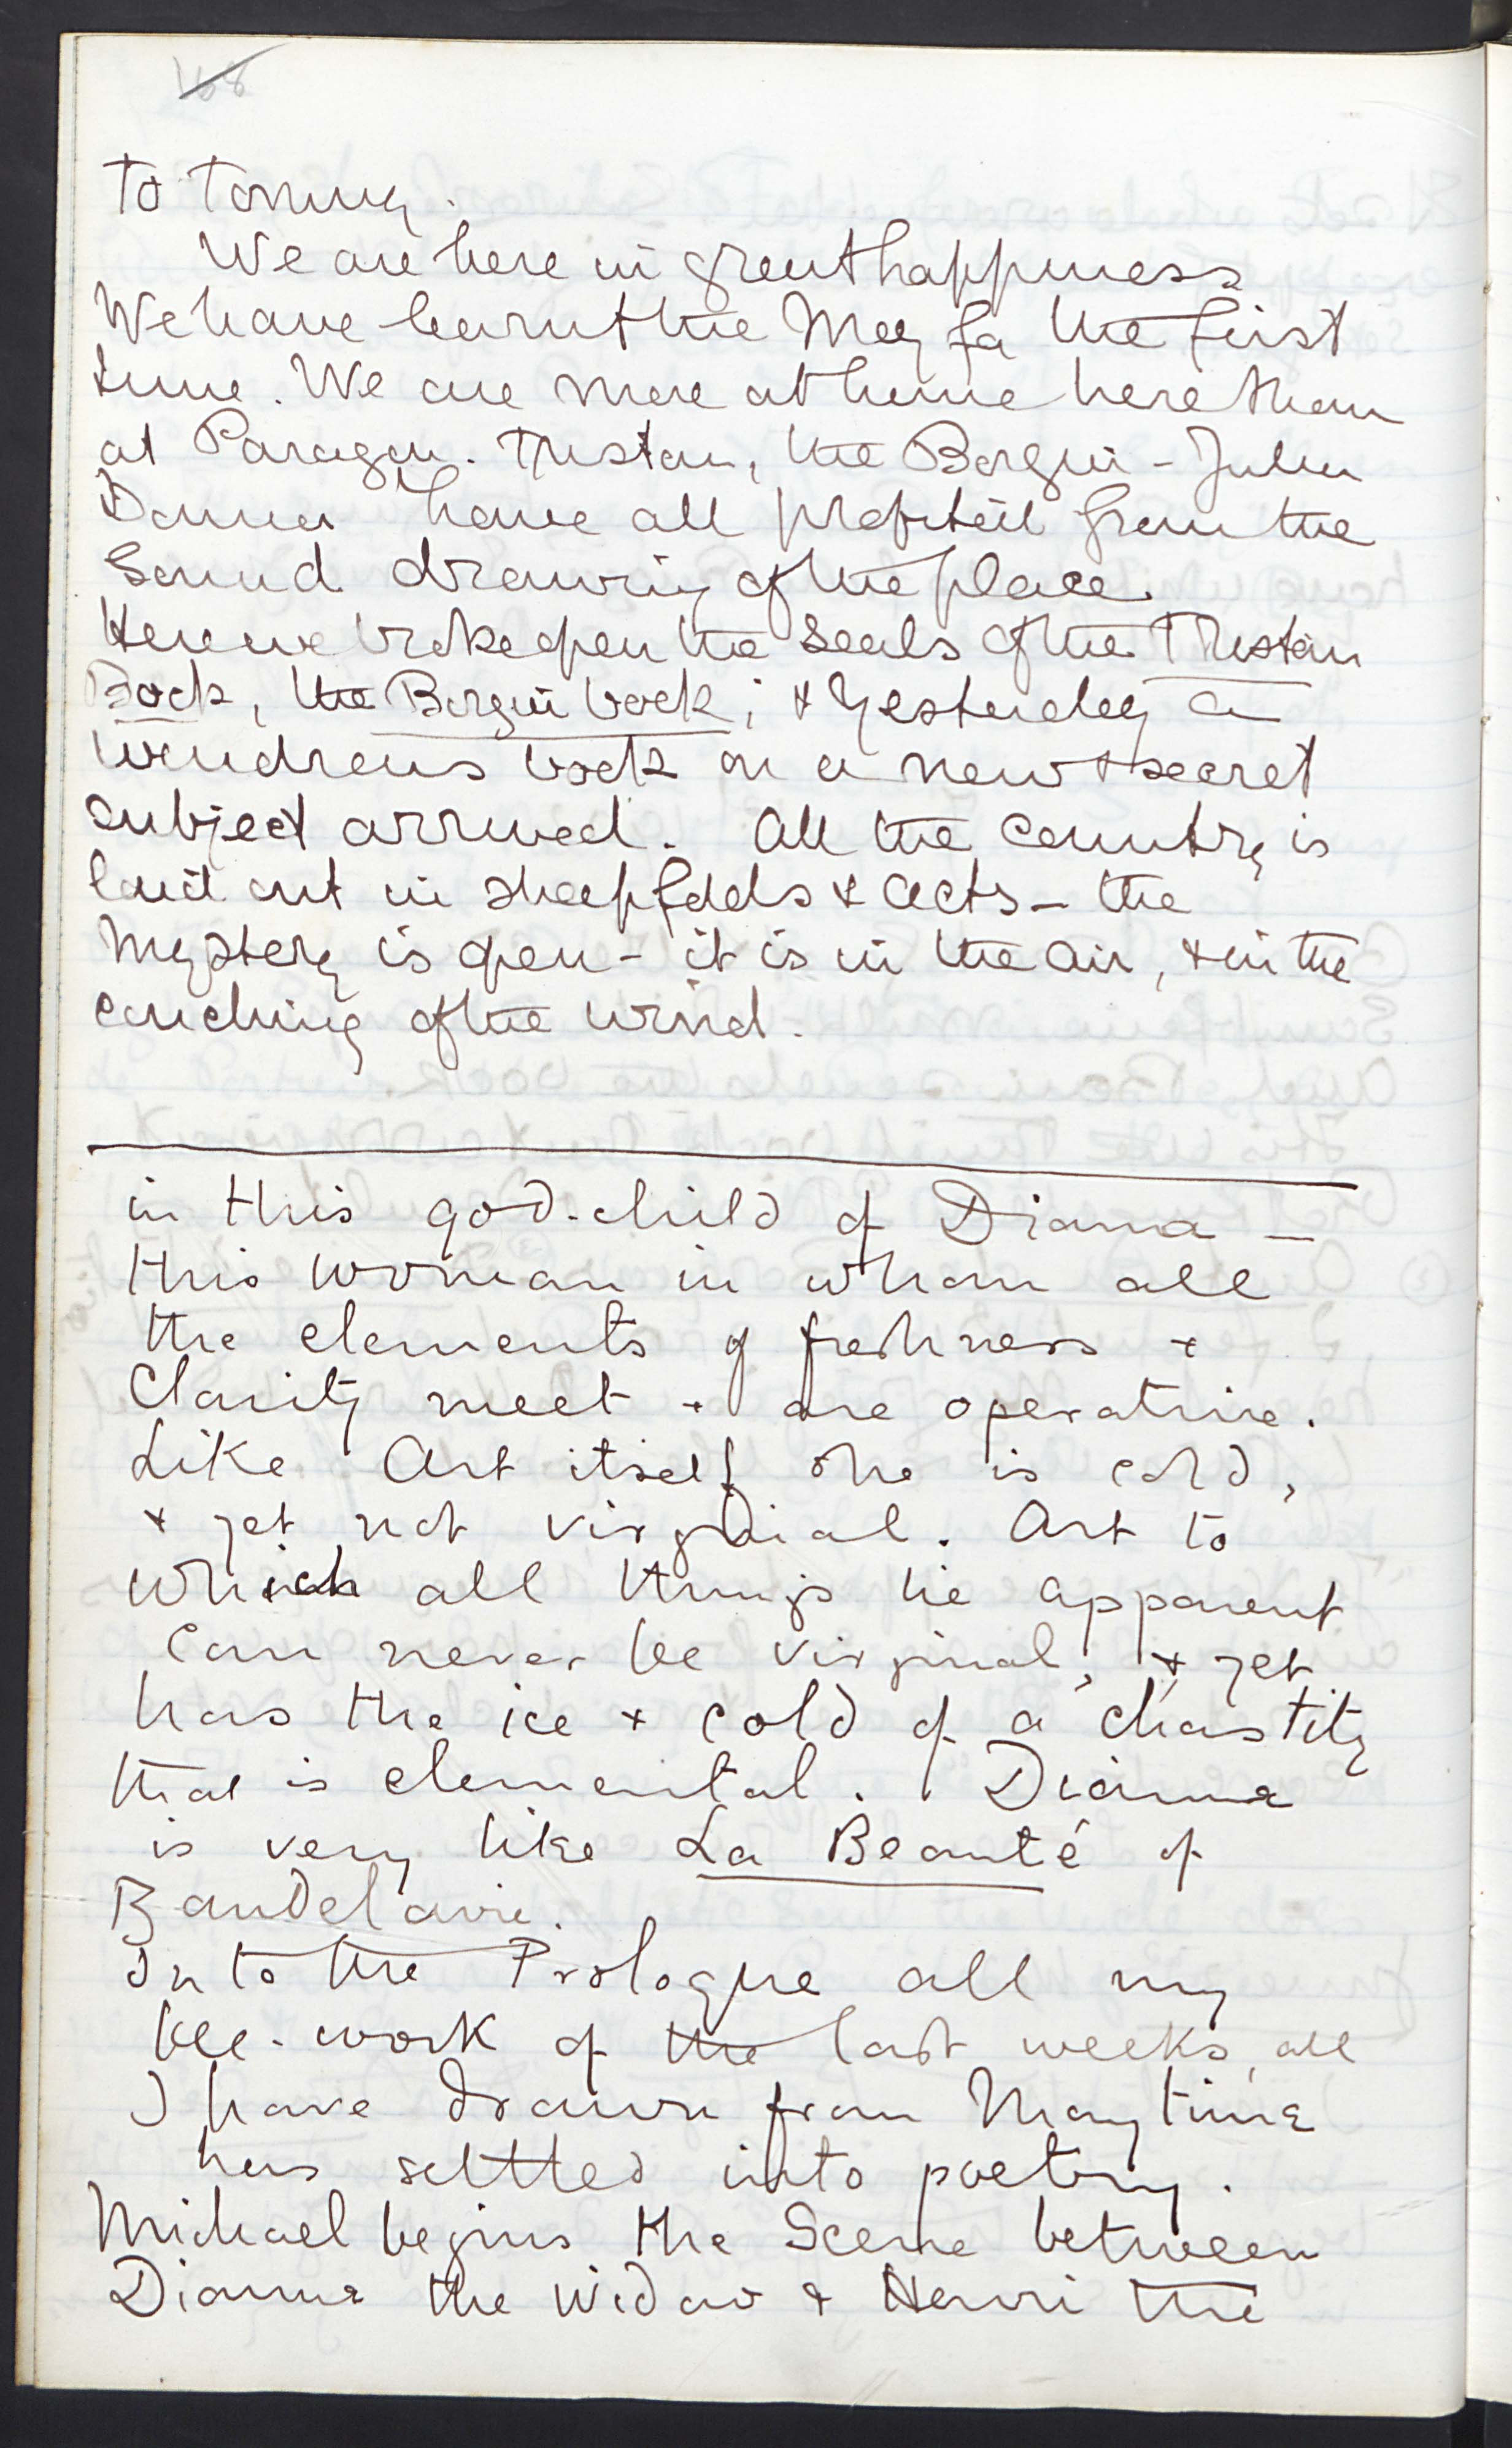 168
to Tommy.
We are here in great happiness
We have learnt the May fa the first
time. We are more at home here than
at Paragon. Tristan, the Borgia - Julia
Donna have all profited from the
sound drawing of the place.
Here we broke open the seals of the Tristan
Book, the Borgia book; & yesterday a
wondrous book on a new & secret
subject arrived. All the country is
laid out in sheepfolds & acts - the
mystery is open - it is in the air, & in the
couching of the wind.
in this god-child of Diana -
this woman in whom all
the elements of freshness &
Clarity meet & are operative.
Like Art itself she is cold,
& yet not virginal. Art to
which all things lie apparent
can never be virginal, & yet
has the ice & cold of a chastity
that is elemental. Dianna
is very like La Beauté of
Baudelaire.
Into the Prologue all my
bee-work of the last weeks, all
I have drawn from Maytime
has settled into poetry.
Michael begins the Scene between
Dianna the Widow & Henri the